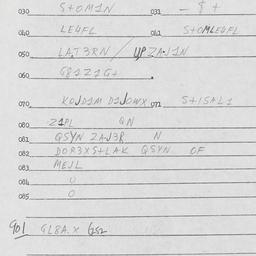 030 S+OM1N 031 — $ +
040 LE4FL 041 S+OMLE4FL
050 LAT3RN / UPZAJ1N
060 G81Z1G+
070 KOJD1M D1JOWX 071 S+1SAL1
080 21PL QN
081 QSYN ZAJ3R N
082 DOR3XS+LAK QSYN OF
083 MEJL
084 0
085 0
901 GL8A.X GS2